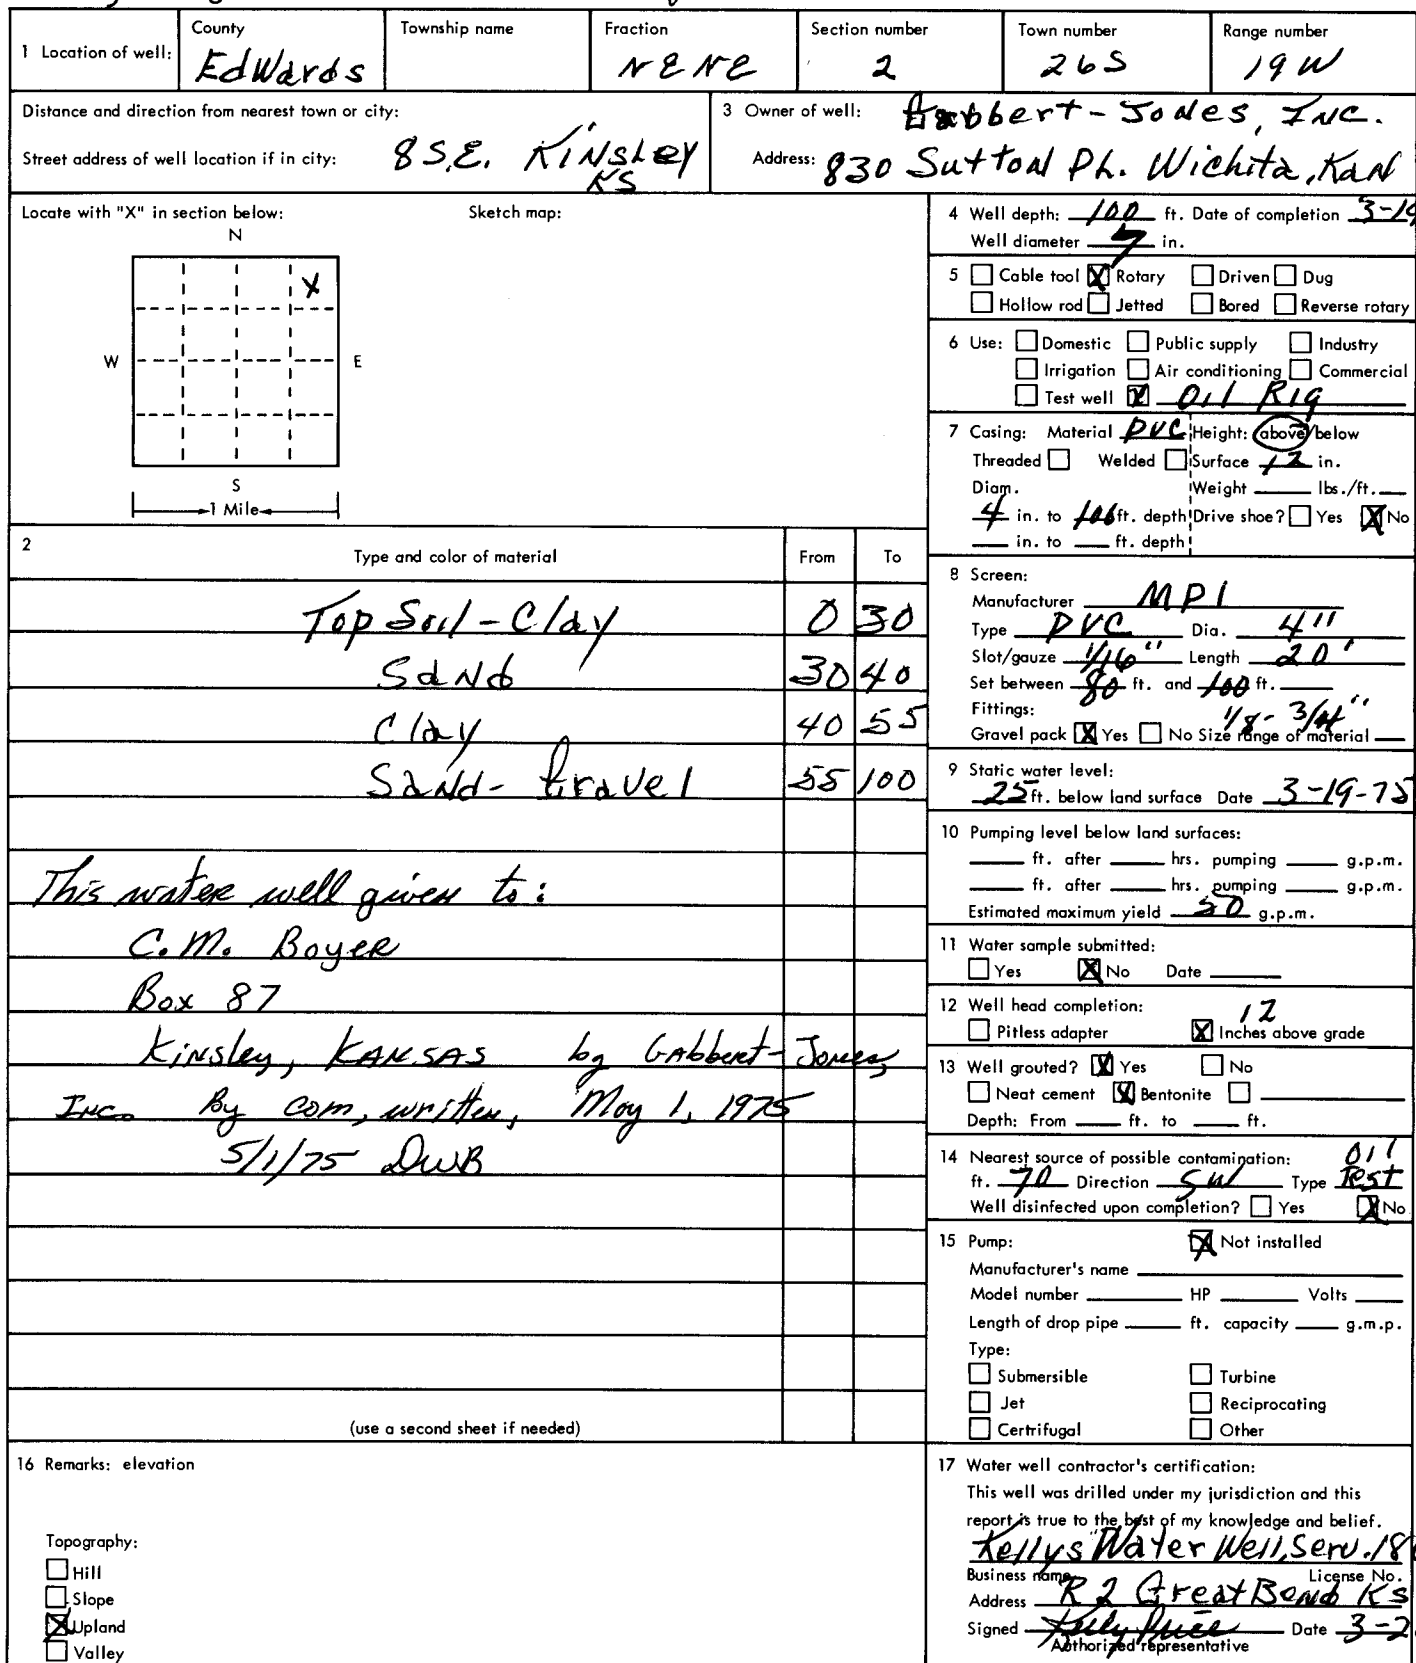 1 Location of well: County Township name Fraction Section number Town number Range number
Edwards NENE 2 26S 19W
Distance and direction from nearest town or city:
Street address of well location if in city: 8 S.E. Kinsley
KS
3 Owner of well: Gabbert-Jones, Inc.
Address: 830 Sutton Pl. Wichita, Kan
Locate with "X" in section below: Sketch map:
N
X
W E
S
1 Mile
2 Type and color of material From To
Top Soil - Clay 0 30
Sand 30 40
Clay 40 55
Sand - Gravel 55 100
This water well given to:
C.M. Boyer
Box 87
Kinsley, Kansas by Gabbert-Jones,
Inc. By com, written, May 1, 1975
5/1/75 DWB
(use a second sheet if needed)
4 Well depth: 100 ft. Date of completion 3-19
Well diameter 7 in.
5 Cable tool X Rotary Driven Dug
Hollow rod Jetted Bored Reverse rotary
6 Use: Domestic Public supply Industry
Irrigation Air conditioning Commercial
Test well X Oil Rig
7 Casing: Material PVC Height: above/below
Threaded Welded Surface 12 in.
Diam. Weight lbs./ft.
4 in. to ft. depth Drive shoe? Yes X No
in. to ft. depth
8 Screen:
Manufacturer MPI
Type PVC Dia. 4"
Slot/gauze 1/16" Length 20'
Set between 80 ft. and 100 ft.
Fittings: 1/8 - 3/4"
Gravel pack X Yes No Size range of material
9 Static water level:
25 ft. below land surface Date 3-19-75
10 Pumping level below land surfaces:
ft. after hrs. pumping g.p.m.
ft. after hrs. pumping g.p.m.
Estimated maximum yield 50 g.p.m.
11 Water sample submitted:
Yes X No Date
12 Well head completion: 12
Pitless adapter X Inches above grade
13 Well grouted? X Yes No
Neat cement X Bentonite
Depth: From ft. to ft.
14 Nearest source of possible contamination: Oil
ft. 70 Direction SW Type Test
Well disinfected upon completion? Yes X No
15 Pump: X Not installed
Manufacturer's name
Model number HP Volts
Length of drop pipe ft. capacity g.m.p.
Type:
Submersible Turbine
Jet Reciprocating
Certrifugal Other
16 Remarks: elevation
Topography:
Hill
Slope
X Upland
Valley
17 Water well contractor's certification:
This well was drilled under my jurisdiction and this
report is true to the best of my knowledge and belief.
Kellys Water Well Serv. 18
Business name License No.
Address R 2 Great Bend KS
Signed Kelly Price Date 3-2
Authorized representative